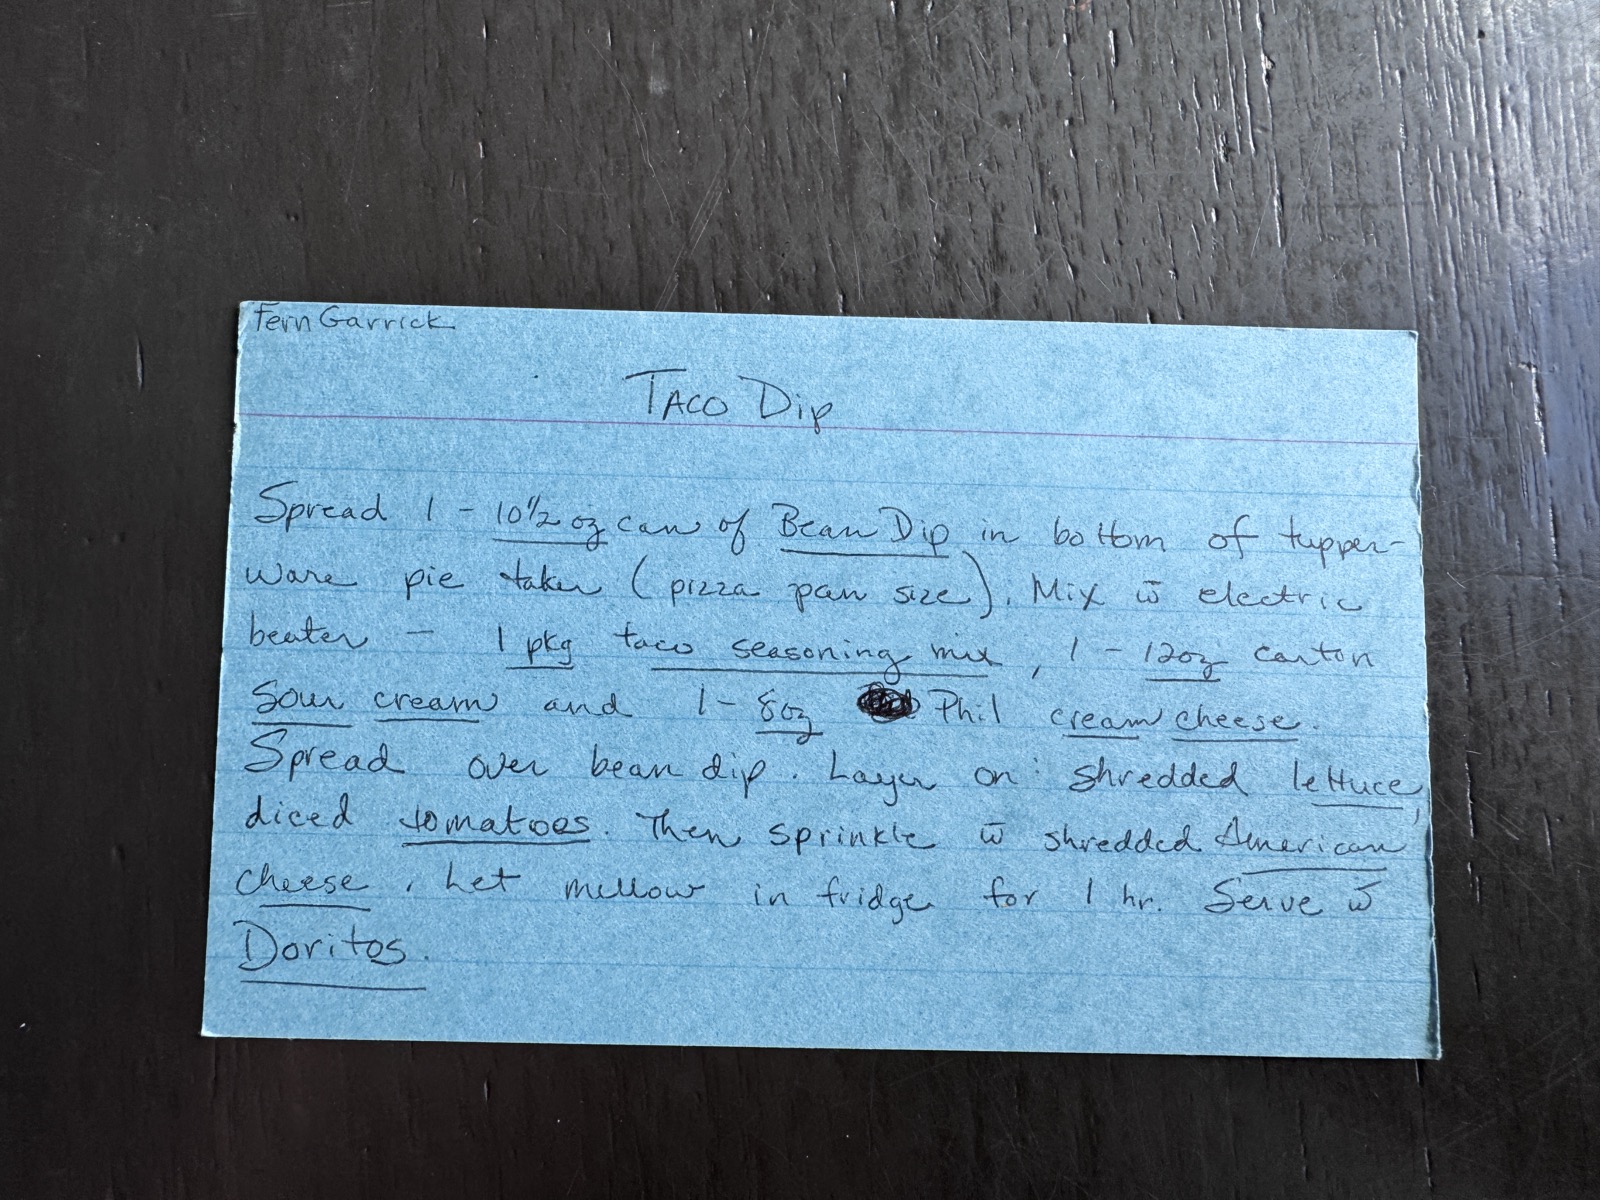 Fern Garrick
Taco Dip
Spread 1 - 10 1/2 oz can of Bean Dip in bottom of tupper-
ware pie taker (pizza pan size). Mix w̄ electric
beater - 1 pkg taco seasoning mix, 1 - 12oz carton
sour cream and 1 - 8oz Phil cream cheese.
Spread over bean dip. Layer on: shredded lettuce,
diced tomatoes. Then sprinkle w̄ shredded American
cheese. Let mellow in fridge for 1 hr. Serve w̄
Doritos.